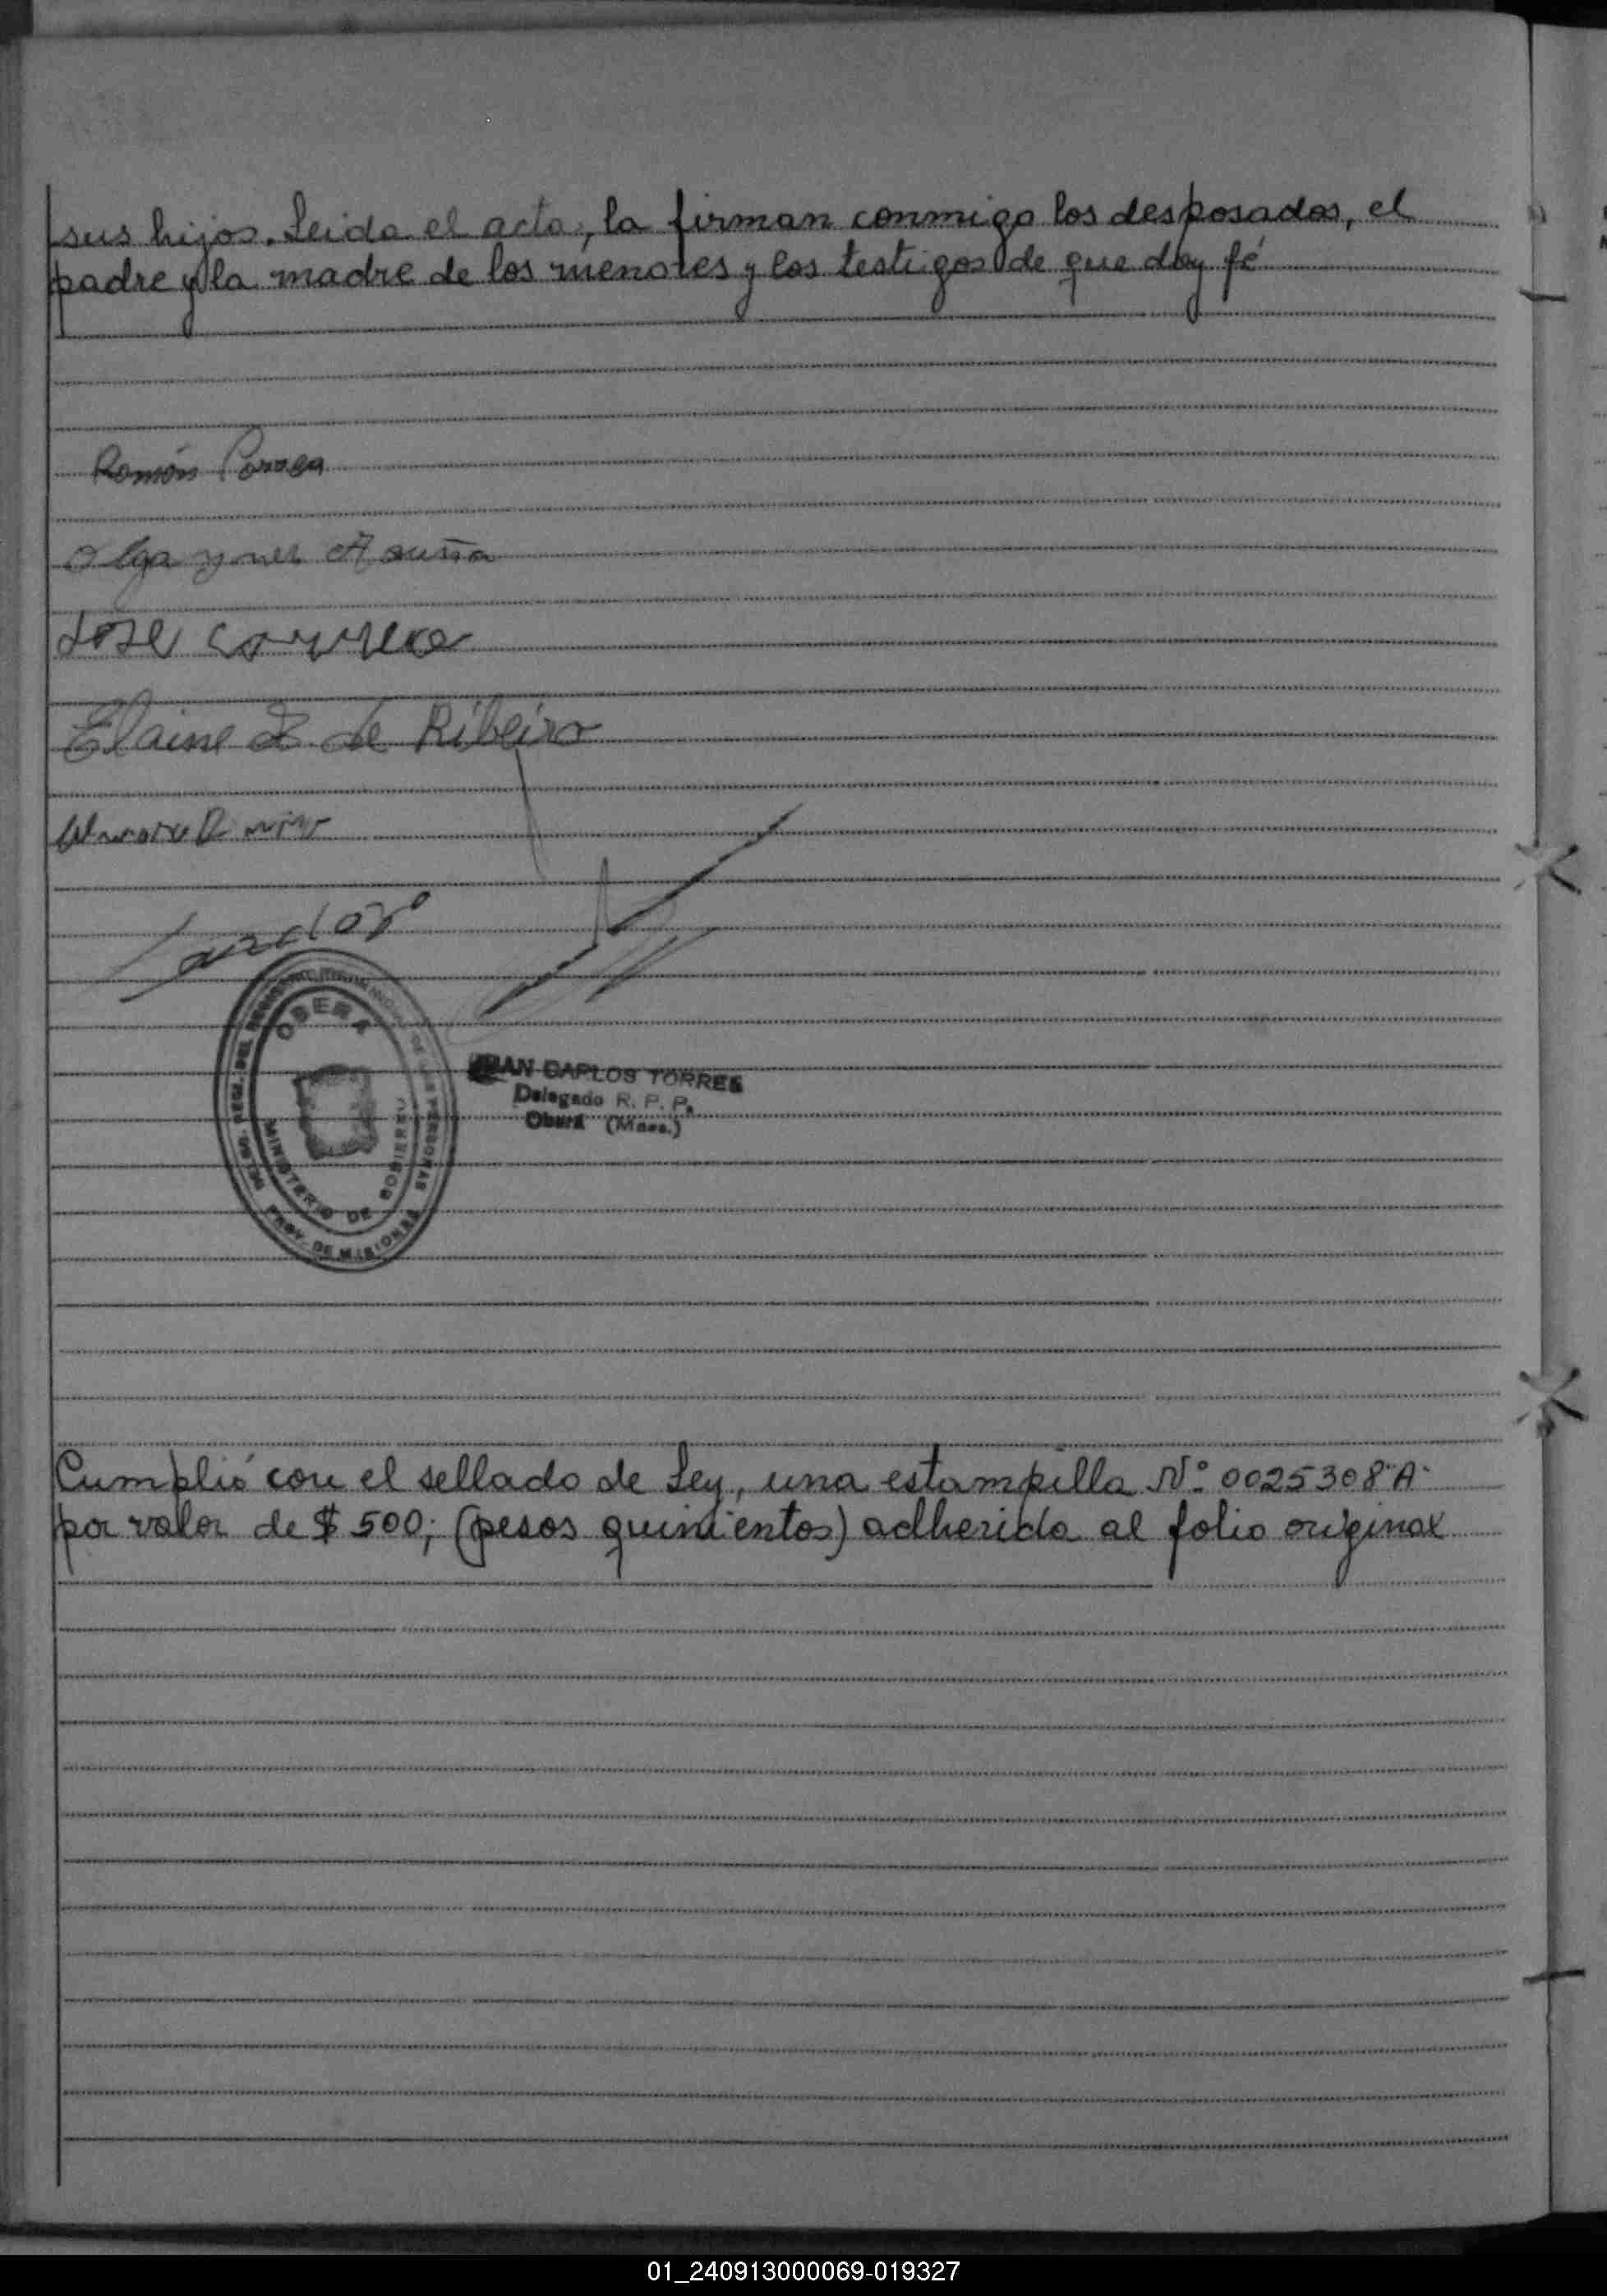 sus hijos. Leida el acta, la firman conmigo los desposados, el
padre y la madre de los menores y los testigos de que doy fé
Ramón Correa
Olga ynes Acuña
Jose correa
Elaine Z. de Ribeiro
OBERA
MINISTERIO DE GOBIERNO
DE LAS PERSONAS
PROV. DE MISIONES
JUAN CARLOS TORRES
Delegado R. P. P.
Oberá (Mnes.)
Cumplió con el sellado de Ley, una estampilla Nº 0025308"A"
por valor de $ 500; (pesos quinientos) adherida al folio original
01_240913000069-019327